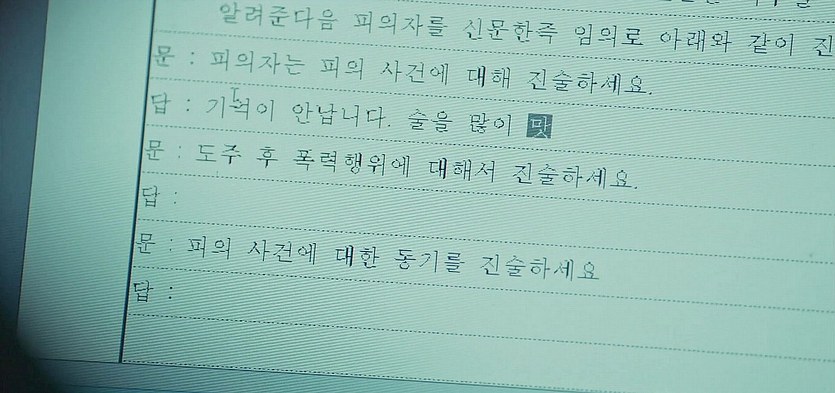 알려준다음 피의자를 신문한즉 임의로 아래와 같이 진
문 : 피의자는 피의 사건에 대해 진술하세요.
답 : 기억이 안납니다. 술을 많이 맛
문 : 도주 후 폭력행위에 대해서 진술하세요.
답 :
문 : 피의 사건에 대한 동기를 진술하세요
답 :